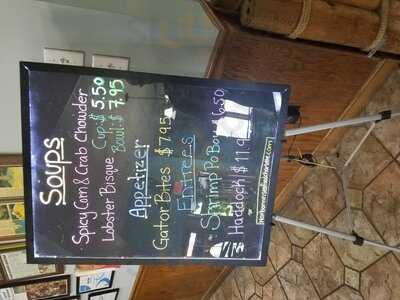 Soups
Spicy Corn & Crab Chowder
Lobster Bisque
Cup: $5.50
Bowl: $7.95
Appetizer
Gator Bites $7.95
Entrees
Shrimp Po Boy
6.50
Haddock $11.9